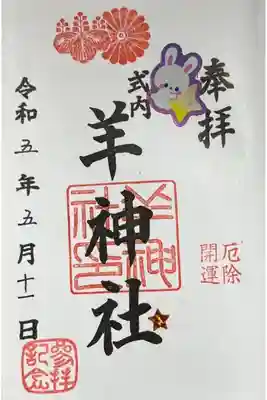 奉拝
厄除
開運
式内
羊神社
羊神社印
令和五年五月十一日
参拝
記念